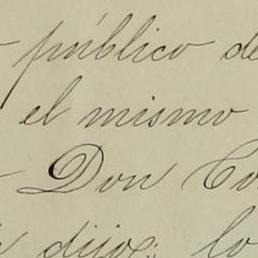 público de
el mismo
Don Co
dijo: lo